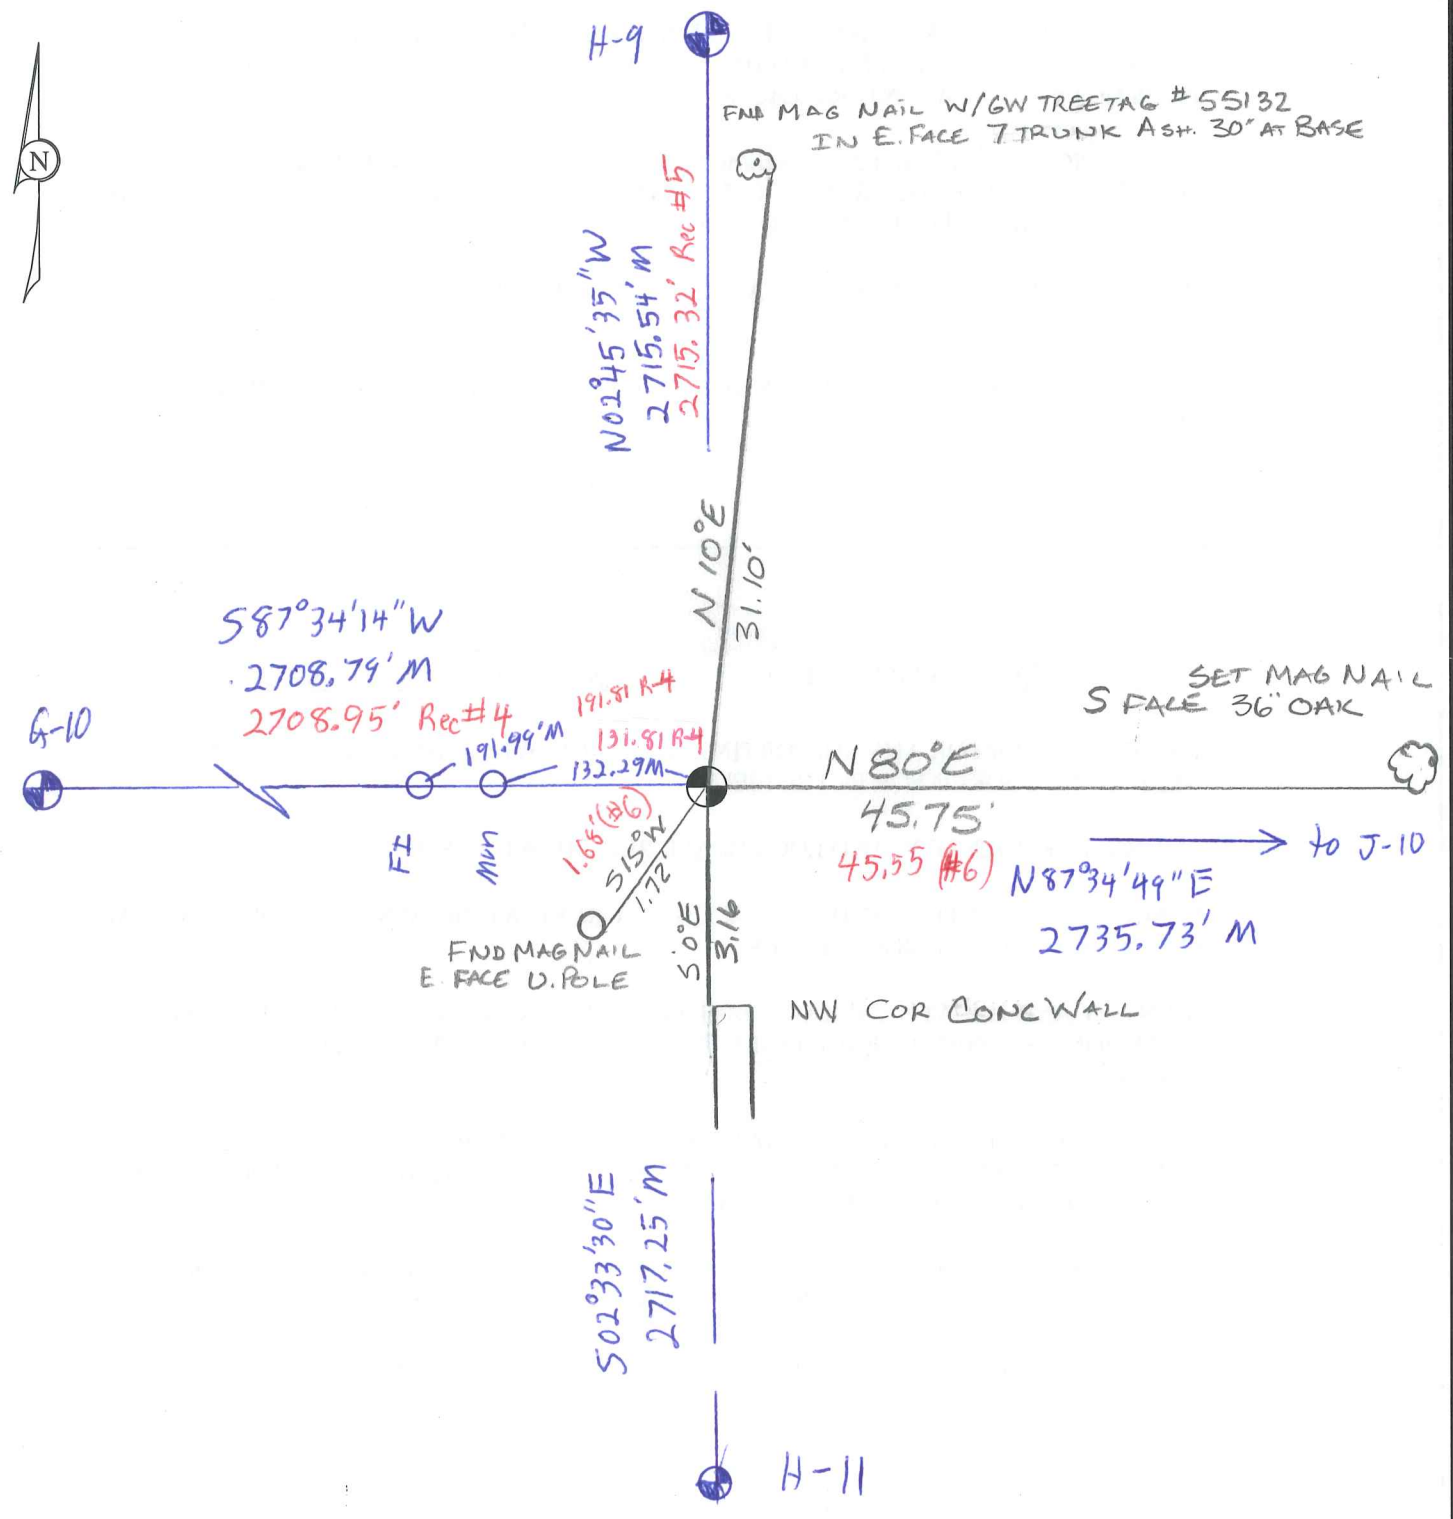 H-9
FND MAG NAIL W/GW TREETAG # 55132
IN E. FACE 7 TRUNK ASH. 30" AT BASE
N
N02°45'35"W
2715.54' M
2715.32' Rec #5
N 10°E
31.10'
S87°34'14"W
2708.79' M
2708.95' Rec#4
191.81 R-4
191.99'M
131.81 R-4
132.29M
G-10
SET MAG NAIL
S FACE 36" OAK
N80°E
45.75'
45.55 (#6)
to J-10
N87°34'49"E
2735.73' M
FI
Mon
1.68' (#6)
S15°W
1.72'
FND MAG NAIL
E. FACE U. POLE
S0°E
3.16
NW COR CONC WALL
S02°33'30"E
2717.25' M
H-11